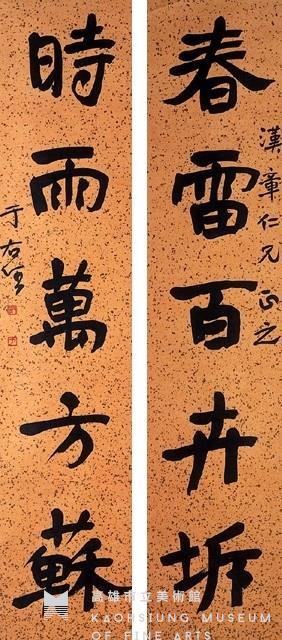 漢章仁兄正之
春雷百卉坼
時雨萬方蘇
于右任
高雄市立美術館
KAOHSIUNG MUSEUM
OF FINE ARTS